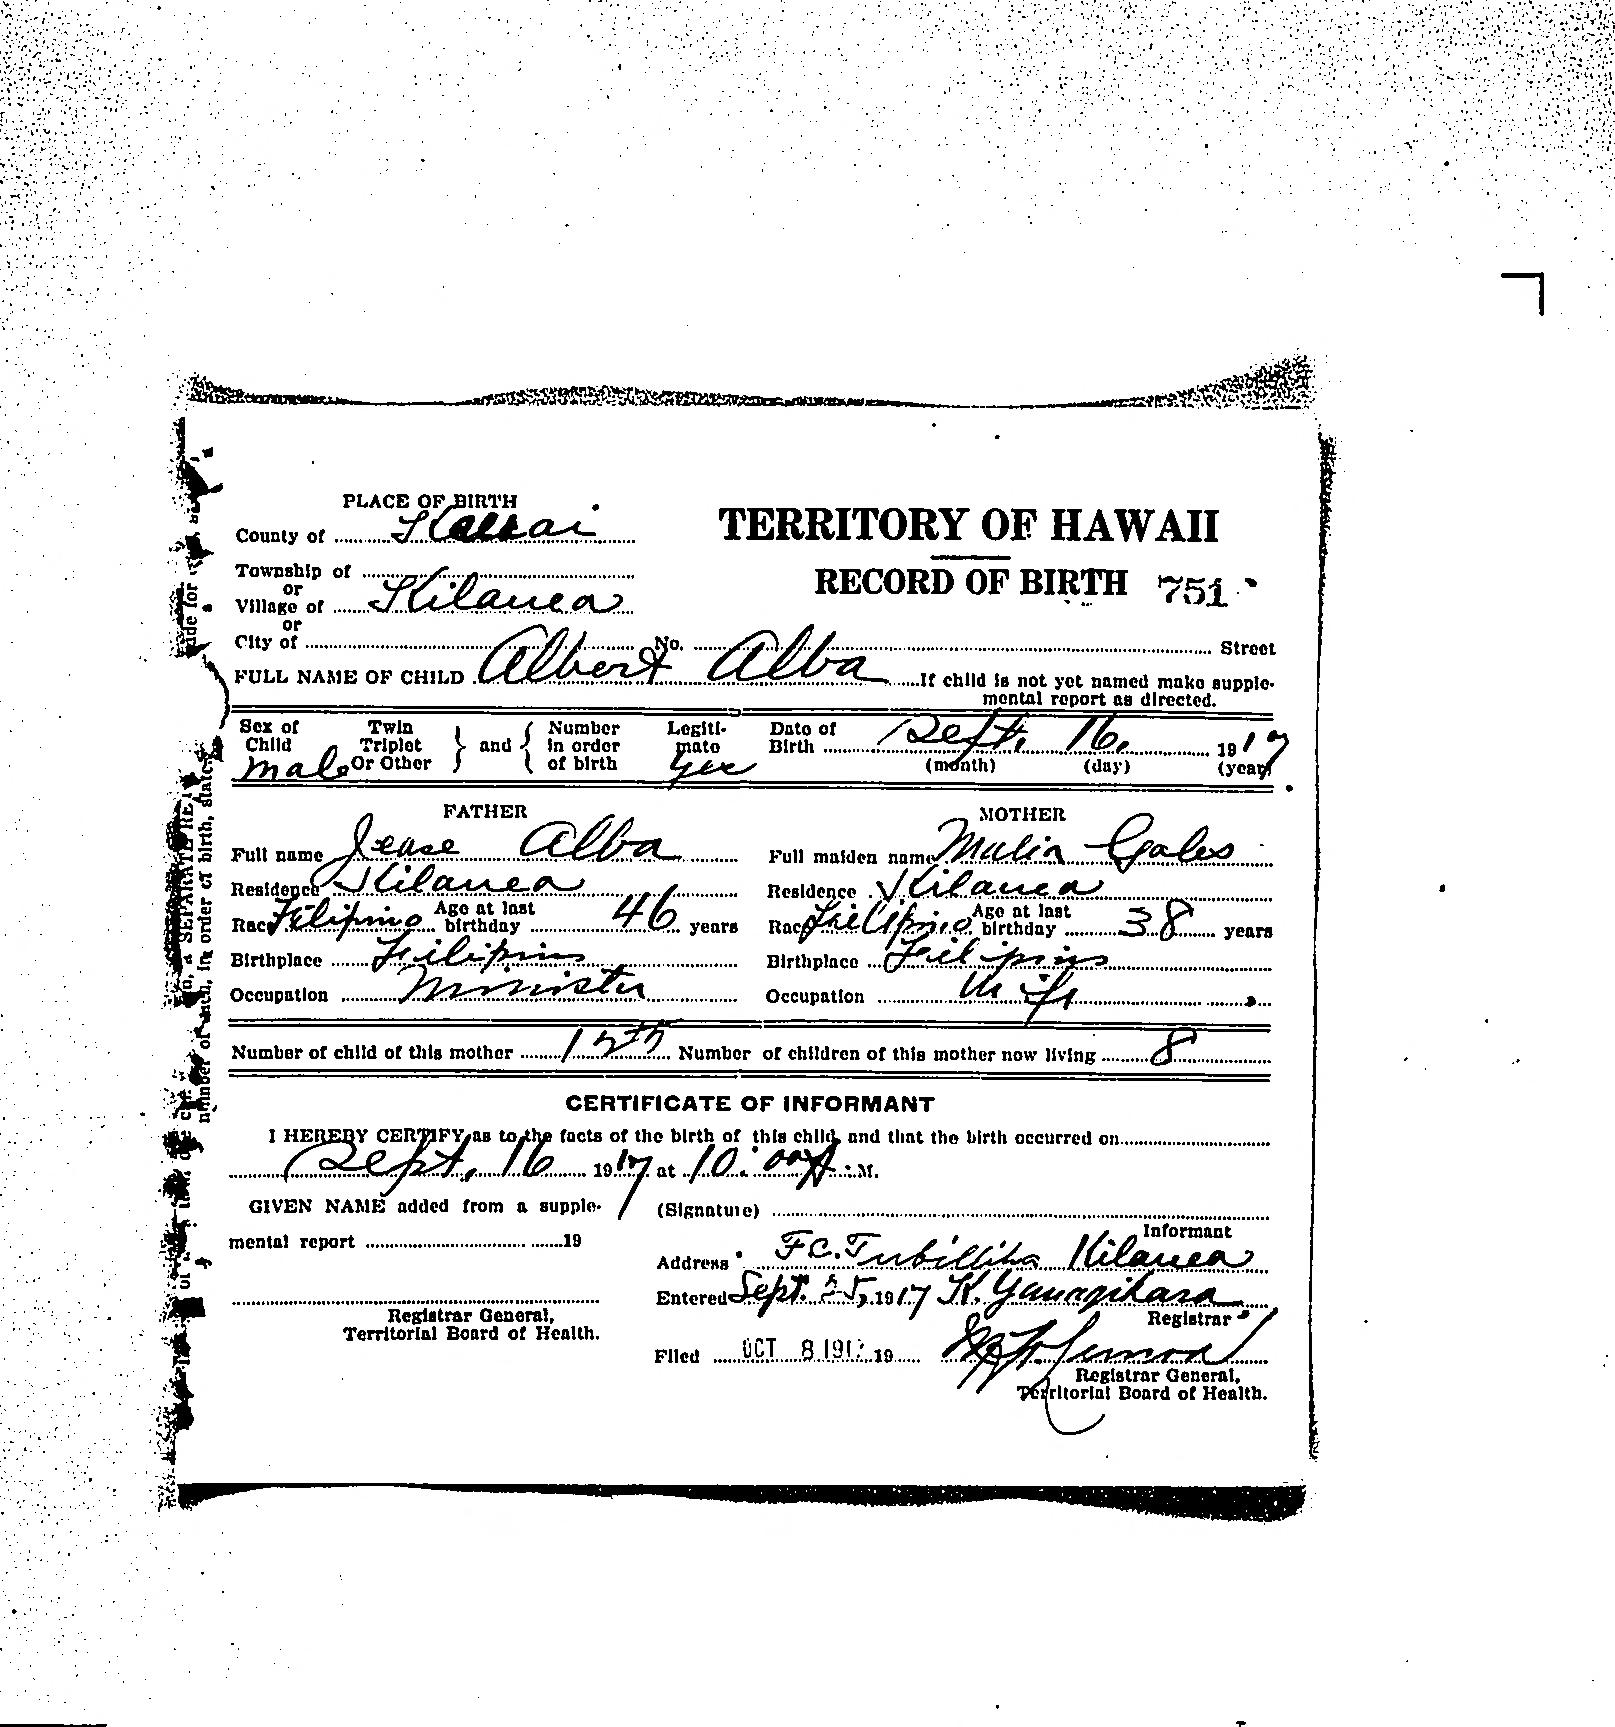 PLACE OF BIRTH
County of Kauai
TERRITORY OF HAWAII
Township of
or
Village of Kilauea
RECORD OF BIRTH 751
or
City of No. Street
FULL NAME OF CHILD Albert Alba If child is not yet named make supplemental report as directed.
Sex of Child Male Twin Triplet Or Other } and { Number in order of birth Legitimate Yes Date of Birth Sept. 16. 1917
(month) (day) (year)
FATHER MOTHER
Full name Jease Alba Full maiden name Malia Gales
Residence Kilauea Residence Kilauea
Race Filipino Age at last birthday 46 years Race Filipino Age at last birthday 38 years
Birthplace Filipins Birthplace Filipins
Occupation Minister Occupation Wife
Number of child of this mother 12th Number of children of this mother now living 8
CERTIFICATE OF INFORMANT
I HEREBY CERTIFY as to the facts of the birth of this child, and that the birth occurred on
Sept. 16 1917 at 10:00 A. M.
GIVEN NAME added from a supple- (Signature)
Informant
mental report 19
Address F.C. Kilauea
Entered Sept. 25, 1917 K.
Registrar
Registrar General,
Territorial Board of Health.
Filed OCT 8 191 19
Registrar General,
Territorial Board of Health.
SEPARATE RE
number of each, in order of birth, stated.